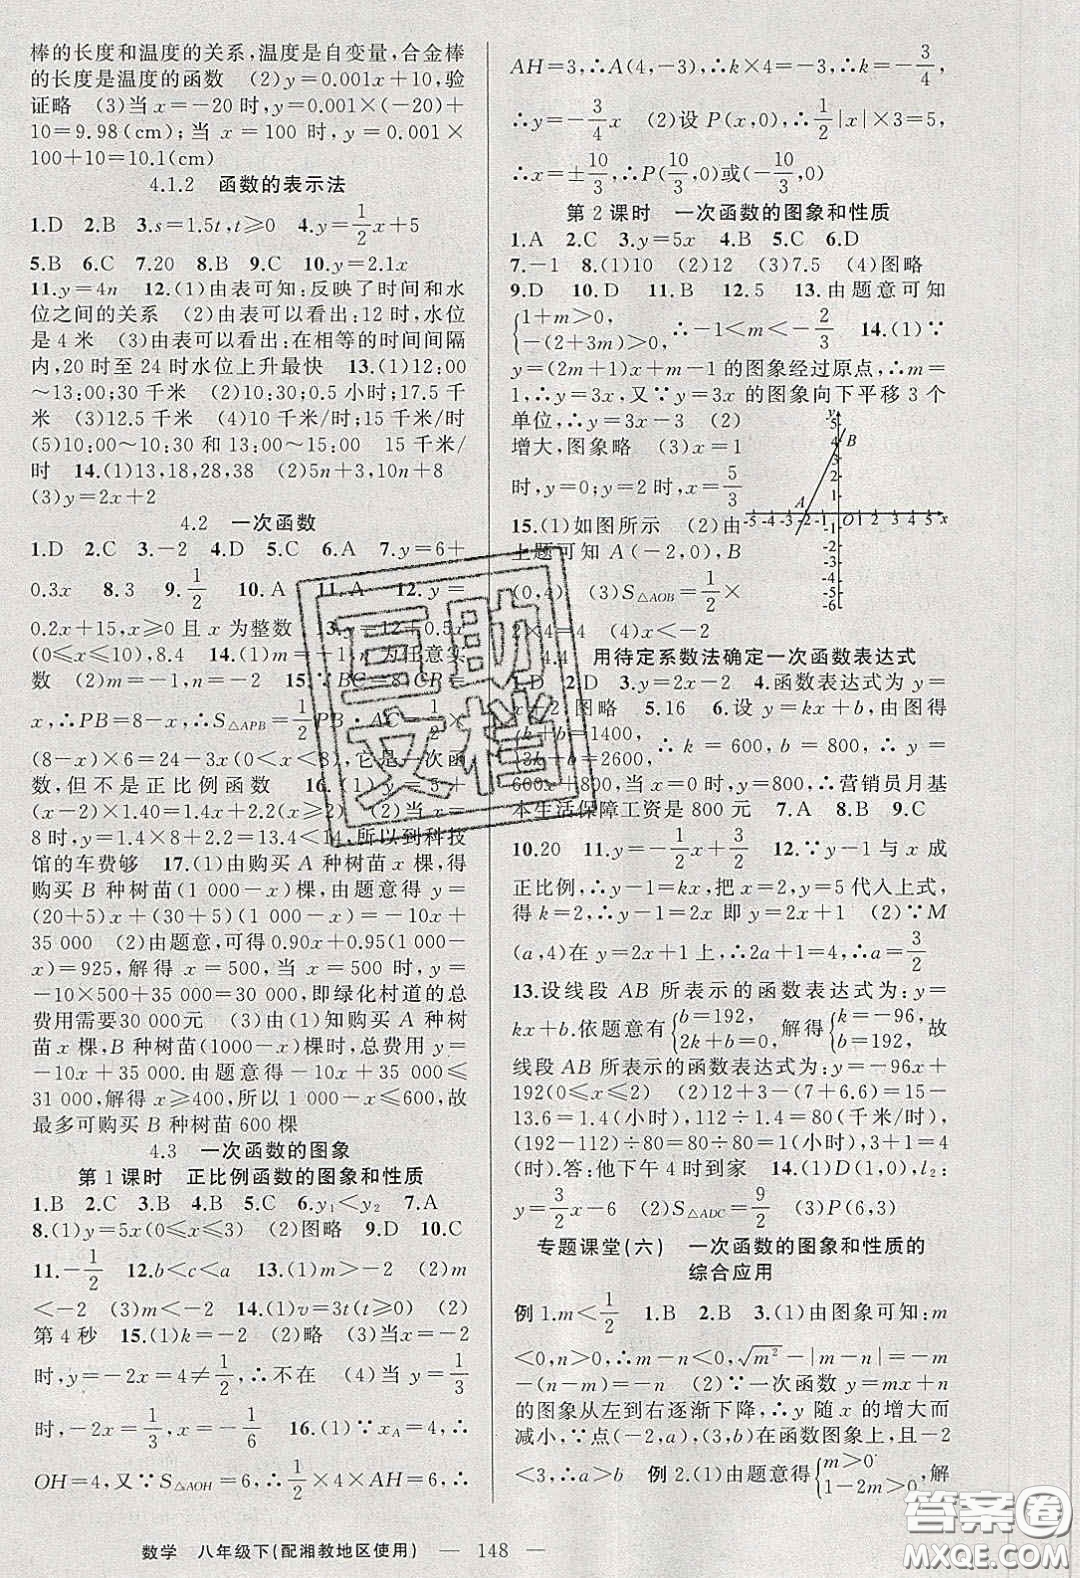 棒的长度和温度的关系,温度是自变量,合金棒
的长度是温度的函数 (2)y=0.001x+10,验
证略 (3)当 x=-20 时,y=0.001×(-20)+
10=9.98(cm);当 x=100 时,y=0.001×
100+10=10.1(cm)
4.1.2 函数的表示法
1.D 2.B 3.s=1.5t,t≥0 4.y=1/2x+5
5.B 6.C 7.20 8.B 9.C 10.y=2.1x
11.y=4n 12.(1)由表可知:反映了时间和水
位之间的关系 (2)由表可以看出:12时,水位
是 4 米 (3)由表可以看出:在相等的时间间隔
内,20 时至 24 时水位上升最快 13.(1)12:00
~13:00;30 千米 (2)10:30;0.5 小时;17.5 千
米 (3)12.5 千米 (4)10千米/时;15 千米/时
(5)10:00~10:30 和 13:00~13:30 15 千米/
时 14.(1)13,18,28,38 (2)5n+3,10n+8
(3)y=2x+2
4.2 一次函数
1.D 2.C 3.-2 4.D 5.C 6.A 7.y=6+
0.3x 8.3 9.1/2 10.A 11.A 12.y=
0.2x+15,x≥0 且 x 为整数 13.y=12+0.5x
(0≤x≤10),8.4 14.(1)m=-1,n 为任意实
数 (2)m=-1,n=2 15.∵BC=8,CP=
x,∴PB=8-x,∴S△APB=1/2PB·AC=1/2×
(8-x)×6=24-3x(0<x<8),它是一次函
数,但不是正比例函数 16.(1)y=5+
(x-2)×1.40=1.4x+2.2(x≥2) (2)当 x=
8 时,y=1.4×8+2.2=13.4<14,所以到科技
馆的车费够 17.(1)由购买 A 种树苗 x 棵,得
购买 B 种树苗(1000-x)棵,由题意可得 y=
(20+5)x+(30+5)(1 000-x)=-10x+
35 000 (2)由题意,可得 0.90x+0.95(1 000-
x)=925,解得 x=500,当 x=500 时,y=
-10×500+35 000=30 000,即绿化村道的总
费用需要30 000元 (3)由(1)知购买 A 种树
苗x 棵,B 种树苗(1000-x)棵时,总费用 y=
-10x+35 000.由题意得-10x+35 000≤
31 000,解得 x≥400,所以 1 000-x≤600,故
最多可购买 B 种树苗 600 棵
4.3 一次函数的图象
第 1 课时 正比例函数的图象和性质
1.B 2.C 3.B 4.B 5.C 6.y₁<y₂ 7.A
8.(1)y=5x(0≤x≤3) (2)图略 9.D 10.C
11.-1/2 12.b<c<a 13.(1)m=2 (2)m
<-2 (3)m<-2 14.(1)v=3t(t≥0) (2)
第 4 秒 15.(1)k=-2 (2)略 (3)当x=-2
时,y=-2×-2=4≠1/2,∴不在 (4)当 y=1/3
时,-2x=1/3,x=-1/6 16.(1)∵xA=4,∴
OH=4,又∵S△AOH=6,∴1/2×4×AH=6,∴
AH=3,∴A(4,-3),∴k×4=-3,∴k=-3/4,
∴y=-3/4x (2)设 P(x,0),∴1/2|x|×3=5,
∴x=±10/3,∴P(10/3,0)或(-10/3,0)
第 2 课时 一次函数的图象和性质
1.A 2.C 3.y=5x 4.B 5.C 6.D
7.-1 8.(1)10 (2)12 (3)7.5 (4)图略
9.D 10.D 11.B 12.5 13.由题意可知
{1+m>0, -(2+3m)>0, ∴-1<m<-2/3 14.(1)∵
y=(2m+1)x+m-1 的图象经过原点,∴m=
1,∴y=3x,又∵y=3x 的图象向下平移 3 个
单位,∴y=3x-3 (2)
增大,图象略 (3)x=1
时,y=0;y=2时,x=5/3
15.(1)如图所示 (2)由
上题可知 A(-2,0),B
(0,4) (3)S△AOB=1/2×
2×4=4 (4)x<-2
y
5
4
3
2
1
B
A
-5-4-3-2-1 O 1 2 3 4 5 x
-1
-2
-3
-4
-5
-6
4.4 用待定系数法确定一次函数表达式
1.D 2.D 3.y=2x-2 4.函数表达式为 y=
x+2 图略 5.16 6.设 y=kx+b,由图得
{k+b=1400, 3k+b=2600, ∴k=600,b=800,∴y=
600x+800,当 x=0 时,y=800,∴营销员月基
本生活保障工资是 800 元 7.A 8.B 9.C
10.20 11.y=-1/2x+3/2 12.∵y-1 与 x 成
正比例,∴y-1=kx,把 x=2,y=5 代入上式,
得 k=2,∴y-1=2x 即 y=2x+1 (2)∵M
(a,4)在 y=2x+1 上,∴2a+1=4,∴a=3/2
13.设线段 AB 所表示的函数表达式为:y=
kx+b.依题意有{b=192, 2k+b=0, 解得{k=-96, b=192, 故
线段 AB 所表示的函数表达式为:y=-96x+
192(0≤x≤2) (2)12+3-(7+6.6)=15-
13.6=1.4(小时),112÷1.4=80(千米/时),
(192-112)÷80=80÷80=1(小时),3+1=4
(时).答:他下午 4 时到家 14.(1)D(1,0),l₂:
y=3/2x-6 (2)S△ADC=9/2 (3)P(6,3)
专题课堂(六) 一次函数的图象和性质的
综合应用
例 1.m<1/2 1.B 2.B 3.(1)由图象可知:m
<0,n>0,∴m-n<0,√m²-|m-n|=-m
-(n-m)=-n (2)∵一次函数 y=mx+n
的图象从左到右逐渐下降,∴y 随 x 的增大而
减小,∵点(-2,a),(3,b)在函数图象上,且-2
<3,∴a>b 例 2.(1)由题意得{m>0, 1-2m>0, 解
数学 八年级下(配湘教地区使用) — 148 —
互助文档
答案圈
MXQE.COM